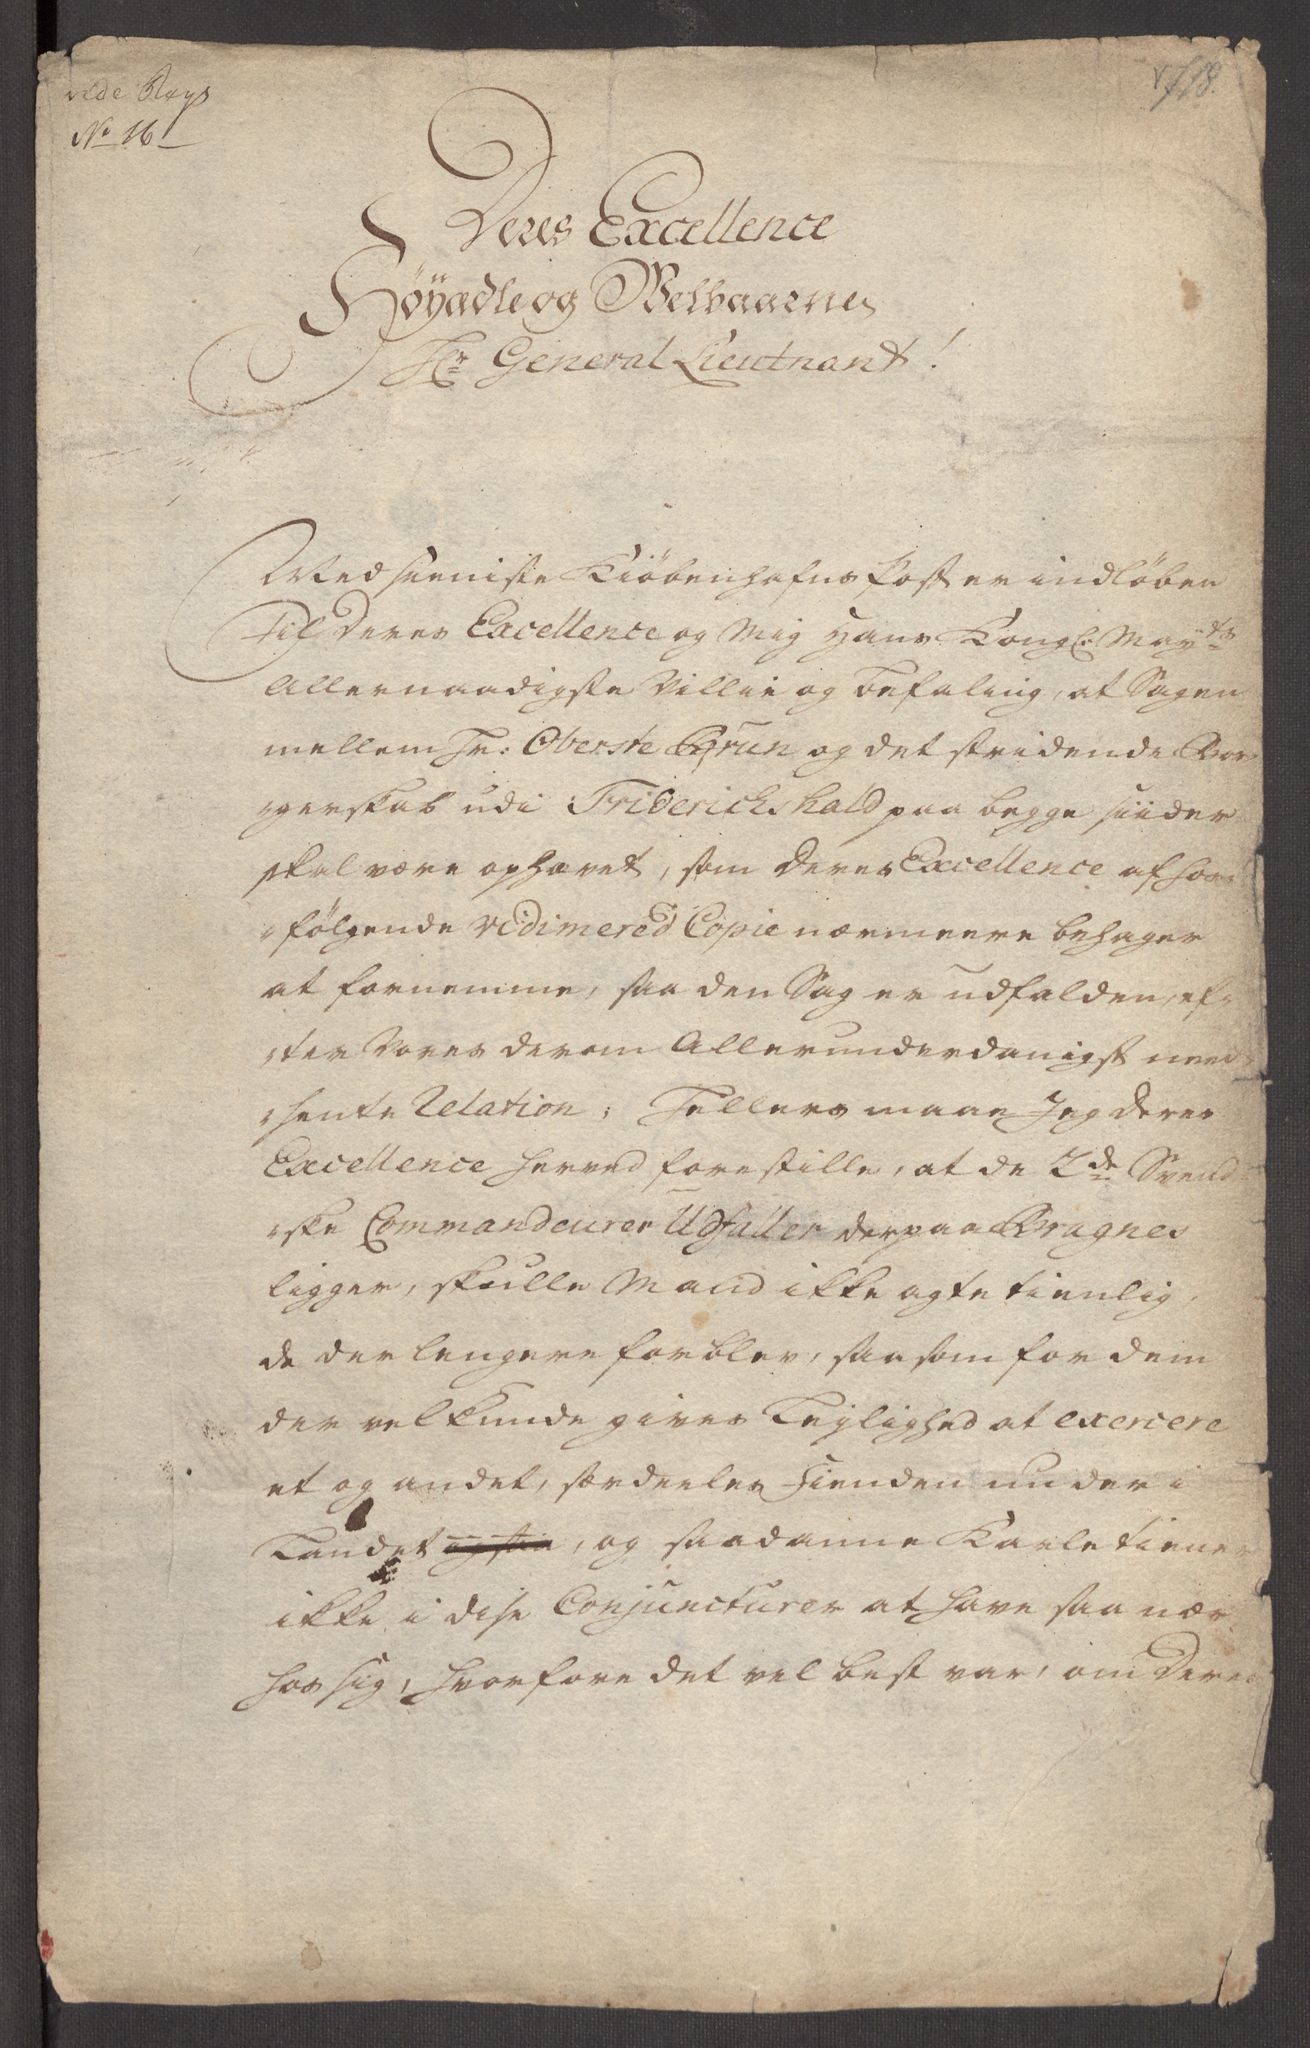 vide Reg
No 16
718.
Deres Excellence
Höyædle og Welbaarne
Hr General Lieutnant!
Med seeniste Kiöbenhafns Post er indlöben
til Deres Excellence og Mig Hans Kongl. Mayts
Allernaadigste Villie og befaling, at Sagen
mellem Hr: Oberste Brün og det stridende Bor-
-gerskab udi Friderichshald paa begge siider
skal være ophævet, som Deres Excellence af hos-
-fölgende vidimered Copie nærmeere behager
at fornemme, saa den Sag er udfalden, ef-
-ter Vores derom Allerunderdanigst need-
-sente Relation; Fellers maae Jeg deres
Excellence herved forestille, at de 2de Svend-
-ske Commandeurer Utfall der paa Bragnes
ligger, skulle Mand ikke agte tienlig,
de der lengere forblev, saasom for dem
der vel kunde gives Leylighed at exercere
et og andet, særdeeles Fienden under i
Landet, og saadanne Karle tiener
ikke i dise Conjuncturer at have saa nær
hos sig, hvorfore det vel best var, om Deres